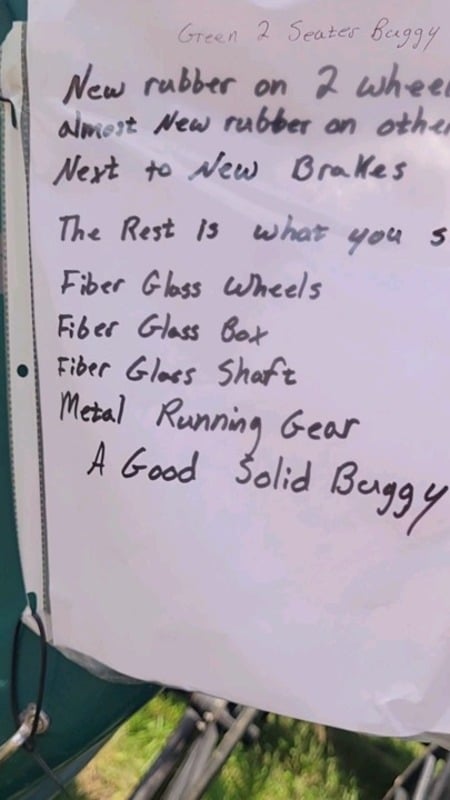 Green 2 Seater Buggy
New rubber on 2 whee
almost New rubber on other
Next to New Brakes
The Rest is what you s
Fiber Glass Wheels
Fiber Glass Box
Fiber Glass Shaft
Metal Running Gear
A Good Solid Buggy